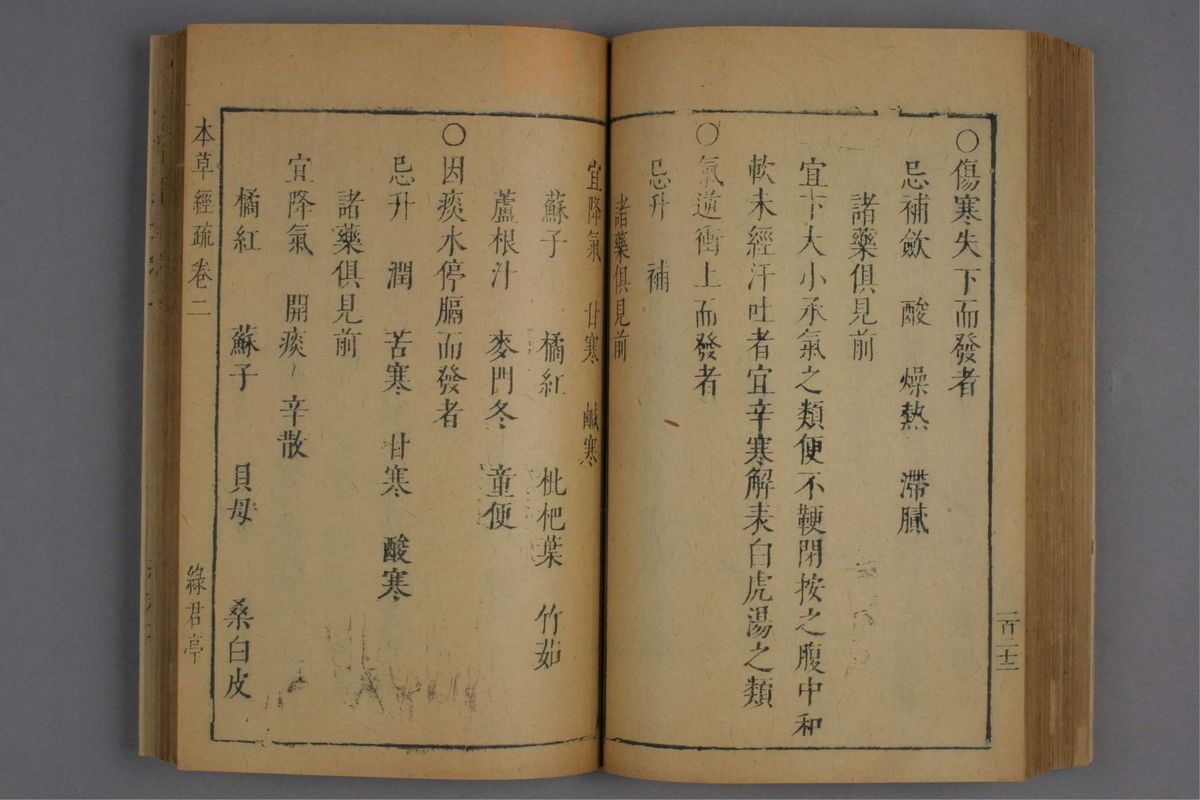 〇傷寒失下而發者
忌補斂 酸 燥熱 滯膩
諸藥俱見前
宜下大小承氣之類便不鞕閉按之腹中和
軟未經汗吐者宜辛寒解表白虎湯之類
〇氣逆衝上而發者
忌升 補
諸藥俱見前
宜降氣 甘寒 鹹寒
蘇子 橘紅 枇杷葉 竹茹
蘆根汁 麥門冬 童便
〇因痰水停膈而發者
忌升 潤 苦寒 甘寒 酸寒
諸藥俱見前
宜降氣 開痰 辛散
橘紅 蘇子 貝母 桑白皮
本草經疏卷二
綠君亭